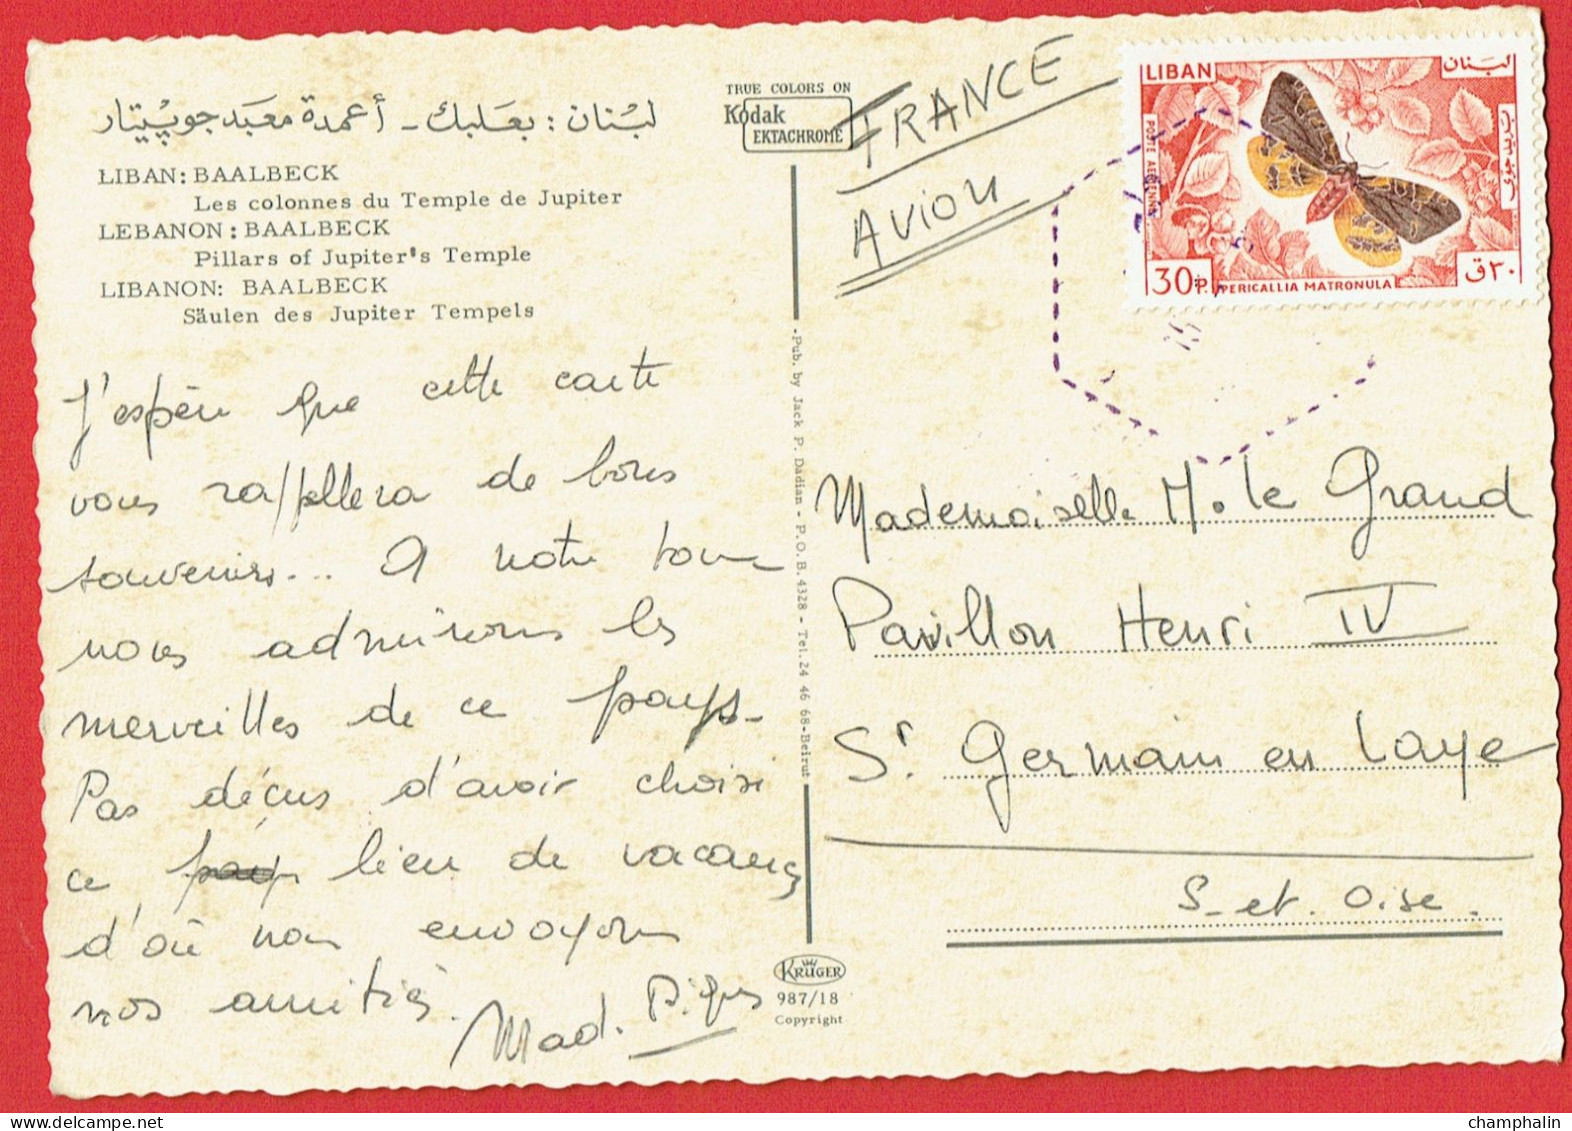 لبنان : بعلبك - أعمدة معبد جوبيتار
LIBAN: BAALBECK
Les colonnes du Temple de Jupiter
LEBANON: BAALBECK
Pillars of Jupiter's Temple
LIBANON: BAALBECK
Säulen des Jupiter Tempels
J'espère que cette carte
vous rappellera de bons
souvenirs... A notre tour
nous admirons les
merveilles de ce pays.
Pas déçus d'avoir choisi
ce lieu de vacances
d'où nous envoyons
nos amitiés.
Mad.
TRUE COLORS ON
Kodak
EKTACHROME
-Pub. by Jack P. Dadian - P.O.B. 4328 - Tel. 24 46 68-Beirut
KRÜGER
987/18
Copyright
FRANCE
AVION
LIBAN
لبنان
POSTE AERIENNE
بريد جوي
30 P.
PERICALLIA MATRONULA
٣٠ ق
Mademoiselle M. Le Grand
Pavillon Henri IV
St Germain en Laye
S. et. Oise.
champhalin